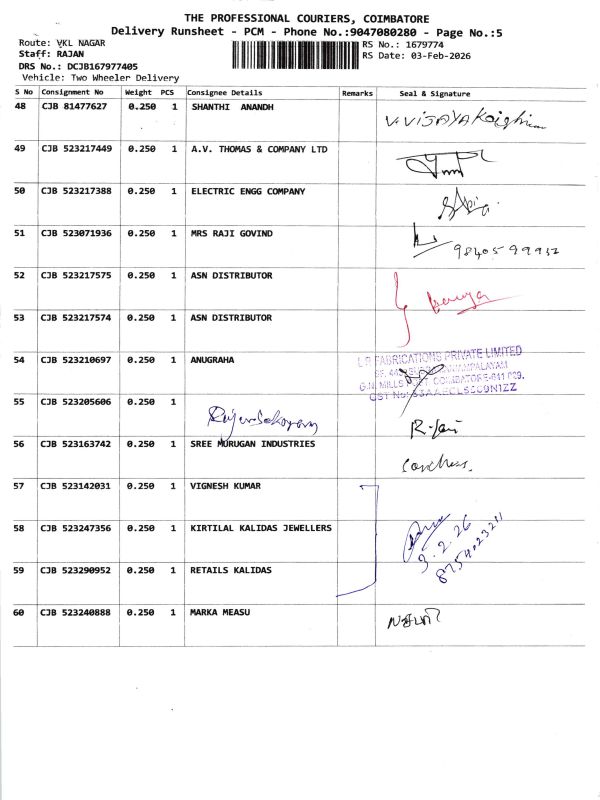 THE PROFESSIONAL COURIERS, COIMBATORE
Delivery Runsheet - PCM - Phone No.:9047080280 - Page No.:5
Route: VKL NAGAR
Staff: RAJAN
DRS No.: DCJB167977405
Vehicle: Two Wheeler Delivery
RS No.: 1679774
RS Date: 03-Feb-2026
S No Consignment No Weight PCS Consignee Details Remarks Seal & Signature
48 CJB 81477627 0.250 1 SHANTHI ANANDH
49 CJB 523217449 0.250 1 A.V. THOMAS & COMPANY LTD
50 CJB 523217388 0.250 1 ELECTRIC ENGG COMPANY
51 CJB 523071936 0.250 1 MRS RAJI GOVIND
9840599932
52 CJB 523217575 0.250 1 ASN DISTRIBUTOR
53 CJB 523217574 0.250 1 ASN DISTRIBUTOR
54 CJB 523210697 0.250 1 ANUGRAHA
FABRICATIONS PRIVATE LIMITED
MILLS COIMBATORE-641 029.
55 CJB 523205606 0.250 1
56 CJB 523163742 0.250 1 SREE MURUGAN INDUSTRIES
57 CJB 523142031 0.250 1 VIGNESH KUMAR
58 CJB 523247356 0.250 1 KIRTILAL KALIDAS JEWELLERS
3.2.26
8754023211
59 CJB 523290952 0.250 1 RETAILS KALIDAS
60 CJB 523240888 0.250 1 MARKA MEASU